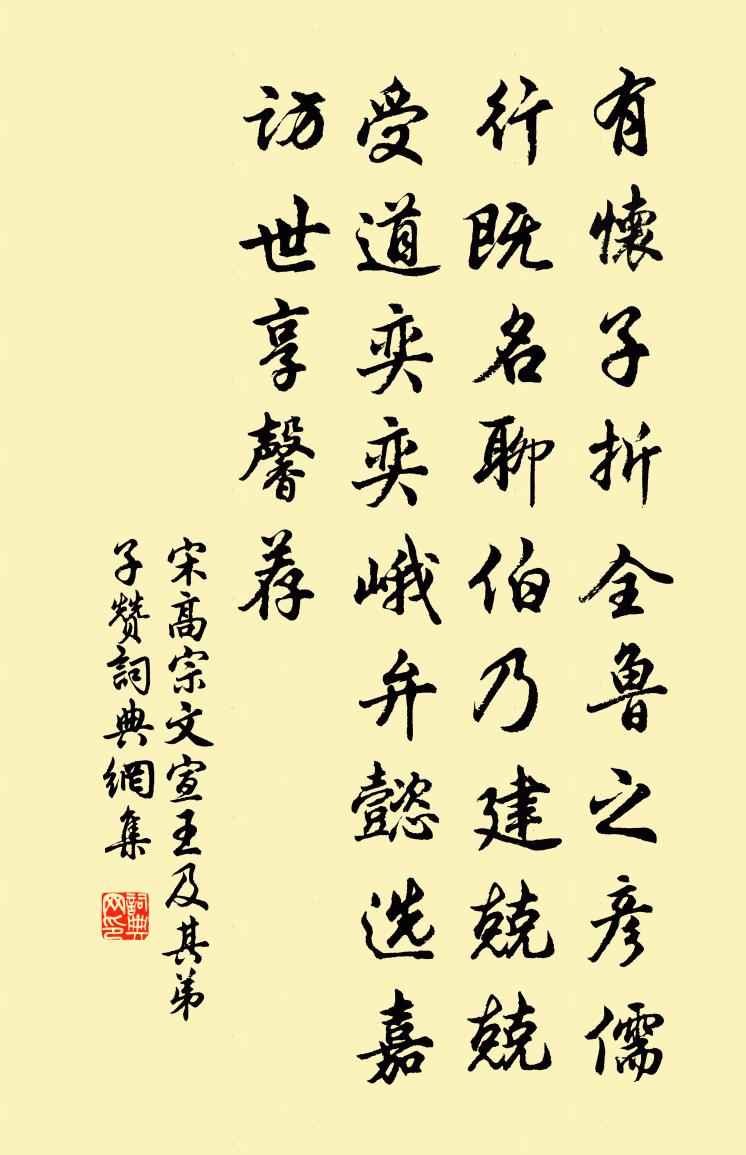 有懷子折全魯之彥儒
行既名聊伯乃建兢兢
受道奕奕峨弁懿选嘉
訪世享馨荐
宋高宗文宣王及其弟
子贊詞典網集
詞典
网印